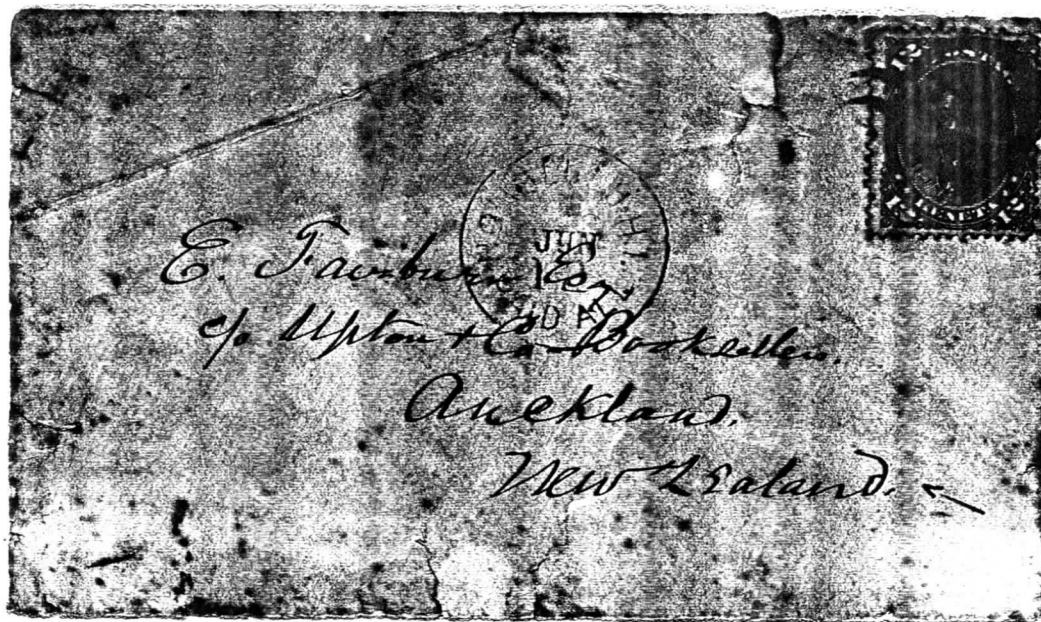 12 12
12 CENTS 12
JUN
E. Fairburn Esqr
c/o Upton & Co Booksellers.
Auckland.
New Zealand.